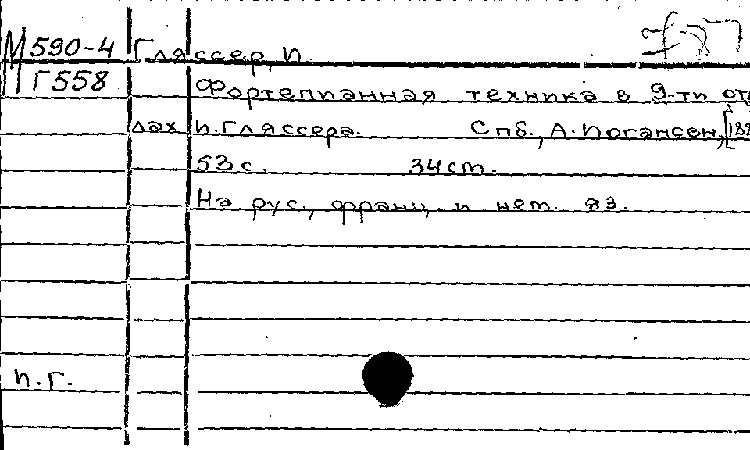 М590-4 Гляссер, И.
Г558 Фортепианная техника в 9-ти от
лах И.Гляссера. Спб., А.Иогансен, [188
53с. 34 см.
На рус., франц. и нем. яз.
И.Г.